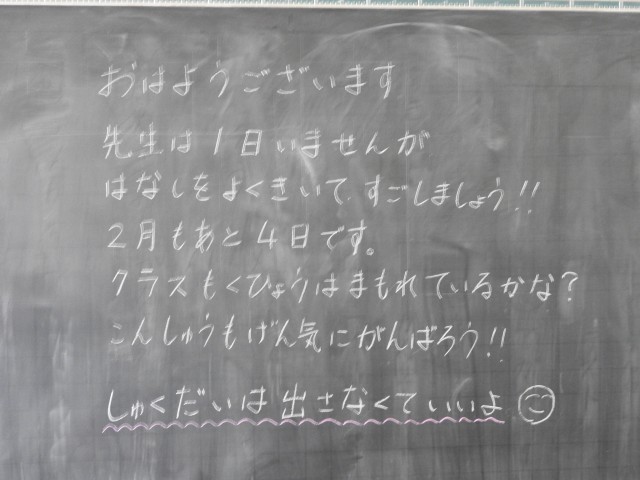 おはようございます
先生は1日いませんが
はなしをよくきいて すごしましょう!!
2月もあと4日です。
クラスもくひょうはまもれているかな?
こんしゅうもげん気にがんばろう!!
しゅくだいは出さなくていいよ